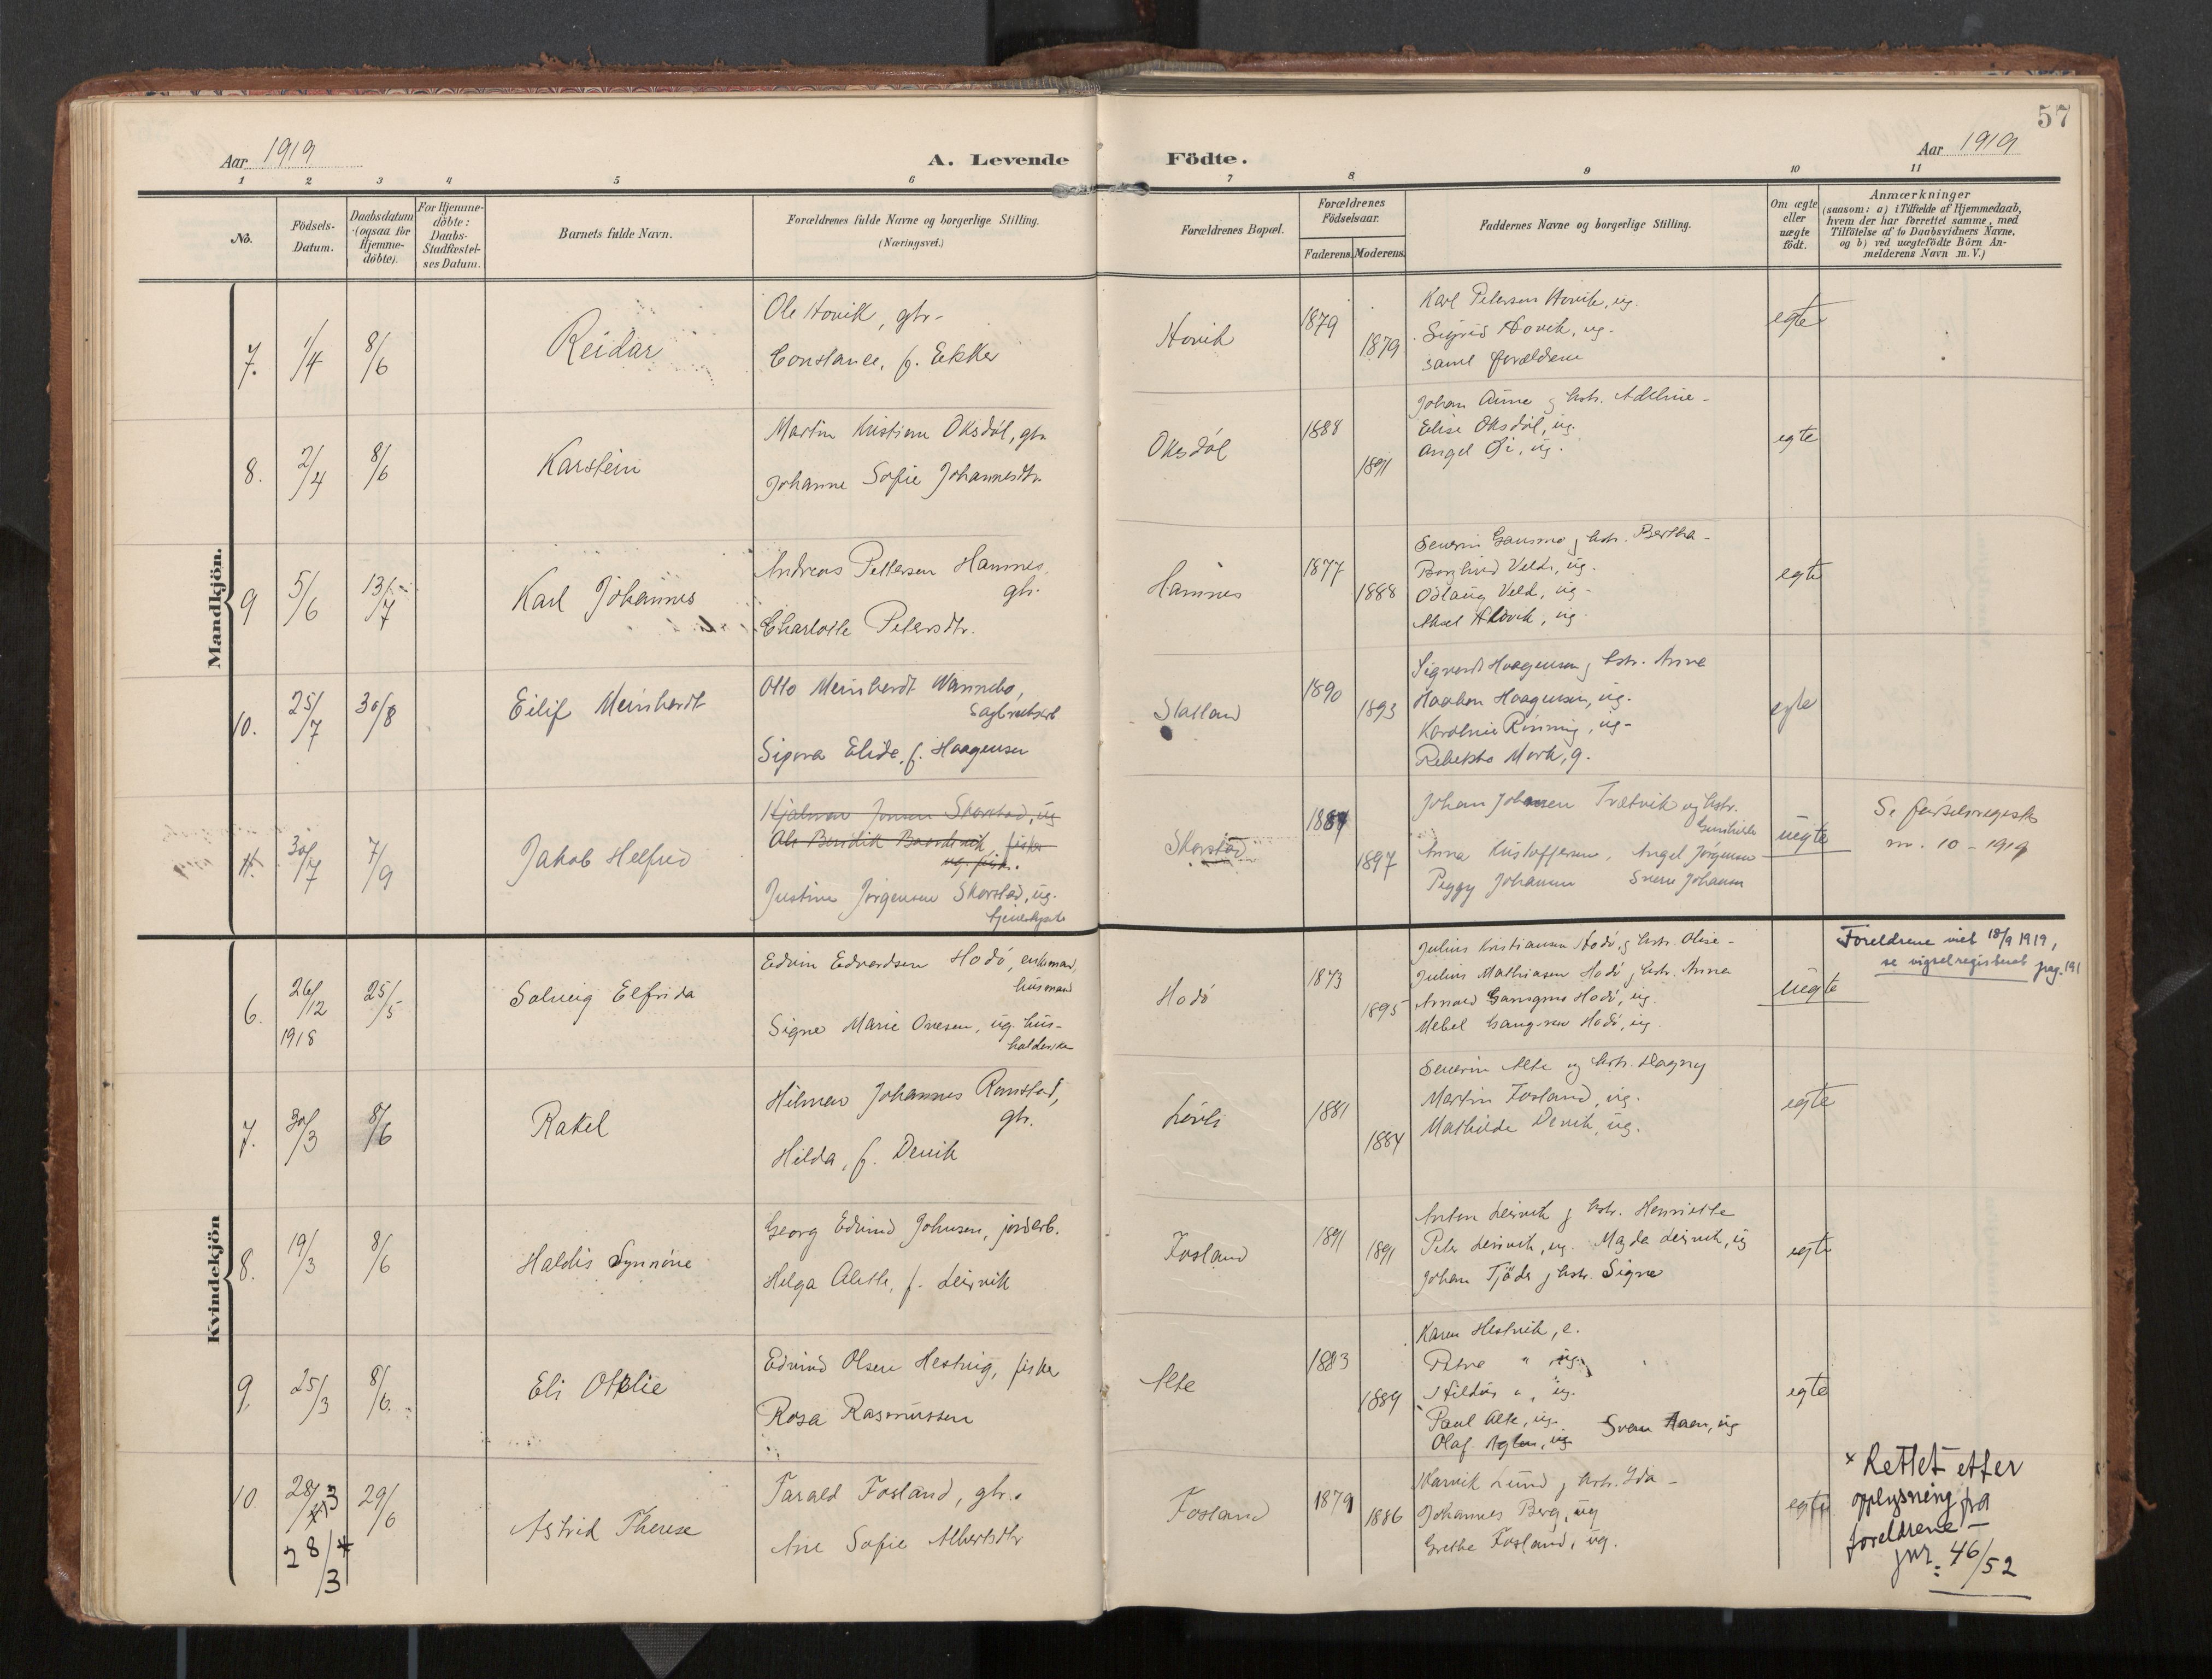 57
Aar 1919
A. Levende Födte.
Aar 1919
1 2 3 4 5 6 7 8 9 10 11
No.
Födsels-
Datum.
Daabsdatum
(ogsaa for
Hjemme-
döbte).
For Hjemme-
döbte:
Daabs-
Stadfæstel-
ses Datum.
Barnets fulde Navn.
Forældrenes fulde Navne og borgerlige Stilling.
(Næringsvei.)
Forældrenes Bopæl.
Forældrenes
Födselsaar.
Faderens. Moderens.
Faddernes Navne og borgerlige Stilling.
Om ægte
eller
uægte
födt.
Anmærkninger
(saasom: a) i Tilfælde af Hjemmedaab,
hvem der har forrettet samme, med
Tilföielse af to Daabsvidners Navne,
og b) ved uægtefödte Börn An-
melderens Navn m. V.)
Mandkjön.
7. 1/4 8/6 Reidar
Ole Hovik, gbr.
Constance, f. Ekker
Hovik 1879 1879
Karl Petersen Hovik, ug.
Sigrid Hovik, ug.
samt forældrene
egte
8. 2/4 8/6 Karstein
Martin Kristian Oksdøl, gbr
Johanne Sofie Johannesdtr.
Oksdøl 1888 1891
Johan Aune og hstr. Adeline
Elise Oksdøl, ug.
Angel Øi, ug.
egte
9 5/6 13/7 Karl Johannes
Andreas Pettersen Hamnes,
gbr.
Charlotte Petersdtr.
Hamnes 1877 1888
Severin Gansmo, hstr. Bertha
Borghild Veld, ug.
Odlaug Veld, ug.
Aksel Hovik, ug.
egte
10. 25/7 30/8 Eilif Meinhardt
Otto Meinhardt Wannebo,
Sagbruksarb
Signa Elide, f. Haagensen
Statland 1890 1893
Sigvardt Haagensen, hstr. Anna
Haakon Haagensen, ug.
Karoline Rönning, ug.
Rebekka Mork, g.
egte
11. 30/7 7/9 Jakob Helfred
Hjalmar Jensen Skorstad, ug
fisker
Justine Jørgensen Skorstad, ug.
Skorstad 1897
Johan Johansen Trætvik og hstr.
Gunhilde
Anna Kristoffersen, Angel Jørgensen
Peggy Johansen Sverre Johansen
uegte
Se fødselsregister
nr. 10 - 1919
Kvindekjön
6. 26/12 1918 25/5 Solveig Elfrida
Edvin Edvardsen Hodö, enkemand,
husmand
Signe Marie Ovesen, ug. hus-
holderske
Hodö 1873 1895
Julius Kristiansen Hodö, hstr. Olise
Julius Mathiasen Hodö, hstr. Anna
Arnold Hodö, ug.
Hodö, ug.
uegte
Foreldrene viet 18/9 1919,
se vigselregisteret pag. 191
7. 30/3 8/6 Rakel
Hilmar Johannes Ramstad,
gbr.
Hilda, f. Devik
Lövli 1881 1884
Severin Alte og hstr. Dagny
Martin Fosland, ug.
Mathilde Devik, ug.
egte
8. 19/3 8/6 Haldis Synnöve
Georg Edvind Johnsen, jordarb.
Helga Alette, f. Leirvik
Fosland 1891 1891
Anton Leirvik, hstr. Henriette
Peter Leirvik, ug. Magda Leirvik, ug
Johan, hstr. Signe
egte
9. 25/3 8/6 Eli Otelie
Edvind Olsen Hestvig, fisker
Rosa Rasmussen
Alte 1883 1889
Karen Hestvik, e.
Petra " ug.
Hildur " ug.
Paul Alte, ug.
Olaf Aglen, ug Sven Aaen, ug
egte
10. 28/3 29/6
28/3
Astrid Therese
Tarald Fosland, gbr.
Ane Sofie Albertsdtr
Fosland 1879 1886
Lund, hstr. Ida
Johannes Berg, ug
Grethe Fosland, ug.
egte
x Rettet etter
opplysning fra
foreldrene -
jnr. 46/52